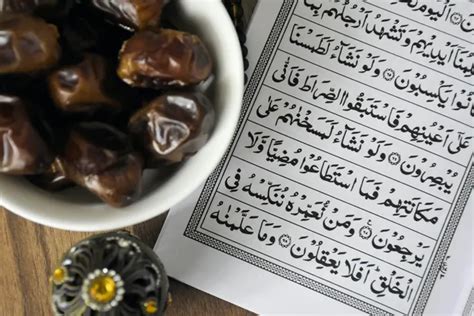 أَيْدِيهِمْ وَتَشْهَدُ أَرْجُلُهُمْ بِمَا
يَكْسِبُونَ ۝٦٥ وَلَوْ نَشَاءُ لَطَمَسْنَا
عَلَىٰ أَعْيُنِهِمْ فَاسْتَبَقُوا الصِّرَاطَ فَأَنَّىٰ
يُبْصِرُونَ ۝٦٦ وَلَوْ نَشَاءُ لَمَسَخْنَٰهُمْ عَلَىٰ
مَكَانَتِهِمْ فَمَا اسْتَطَاعُوا مُضِيًّا وَلَا
يَرْجِعُونَ ۝٦٧ وَمَنْ نُعَمِّرْهُ نُنَكِّسْهُ فِي
الْخَلْقِ أَفَلَا يَعْقِلُونَ ۝٦٨ وَمَا عَلَّمْنَٰهُ